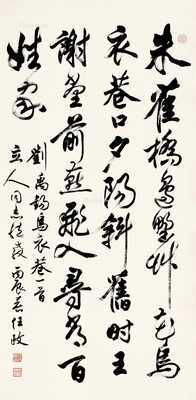 朱雀橋邊野艸花烏
衣巷口夕陽斜舊時王
謝堂前燕飛入尋常百
姓家
劉禹錫烏衣巷一首
立人同志侹段 丙辰春任政